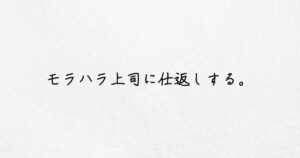 モラハラ上司に仕返しする。